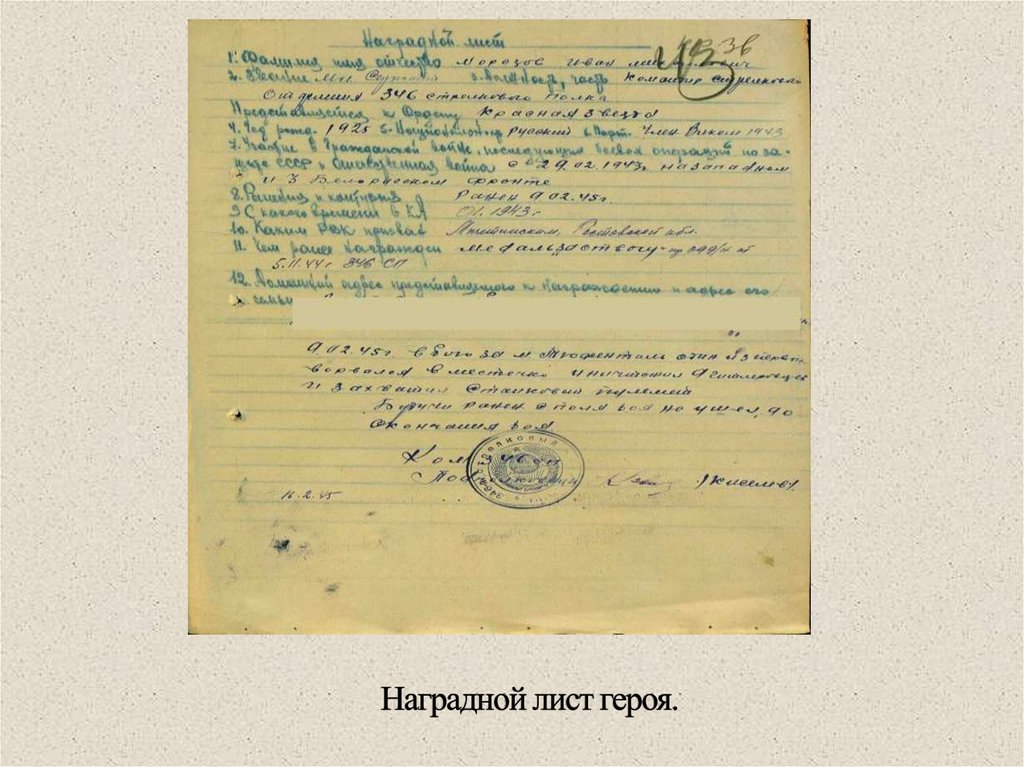 Наградной лист
1. Фамилия имя отчество Морозов Иван
2. Звание Мл Сержант 3. должность, часть Командир стрелкового
Отделения 346 стрелкового Полка
Представляется к Ордену Красная Звезда
4. Год рожд. 1925 5. Национальность русский 6. Парт. Член Влксм 1943
7. Участие в Гражданской войне, последующих боевых операциях по за-
щите СССР и Отечественная война с 29.02.1943г на западном
и 3 Белорусском фронте
8. Ранения и контузия Ранен 9.02.45г.
9 С какого времени в КА 01.1943г
10. Каким РВК призван Ростовской обл.
11. Чем ранее награжден Медаль "За отвагу" пр
5.11.44г 346 СП
12. Домашний адрес представляемого к награждению и адрес его
семьи
9.02.45г. в бою за м. один из первых
ворвался в местечко и уничтожил 9 немцев
и захватил Станковый пулемет
Будучи ранен с поля боя не ушел, до
окончания боя.
Ком
Киселев
16.2.45
36
Наградной лист героя.